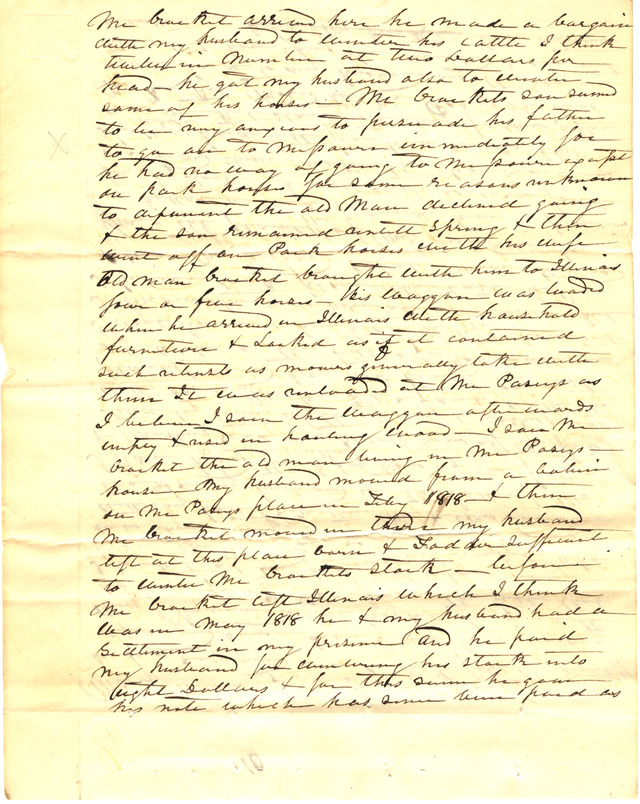 Mr Crocket arrived here he made a bargain
with my husband to winter his cattle I think
twelve in number at two Dollars per
head – he got my husband also to winter
some of his horses – Mr Crockets son seemed
to be very anxious to persuade his father
to go on to Missouri immediately for
he had no way of going to Missouri except
on pack horses for some reasons unknown
to deponent the old man declined going
& the son remained untill Spring & then
went off on Pack horses with his wife
Old man Crocket brought with him to Illinois
four or five horses – his waggon was loaded
when he arrived in Illinois with household
furniture & Looked as if it contained
such as movers generally take with
them It was unloaded at Mr Poseys as
I believe I saw the waggon afterwards
empty & used in hauling wood – I saw Mr
Crocket the old man living in Mr Poseys
house – My husband moved from a Cabin
on Mr Poseys place in Feby 1818 – & then
Mr Crocket moved in there my husband
left at this place corn & Fodder sufficient
to winter Mr Crockets stock – before
Mr Crocket left Illinois which I think
was in May 1818 he & my husband had a
Settlement in my presence and he paid
my husband for wintering his stock
eight Dollars & for this sum he gave
his note which has since been paid as